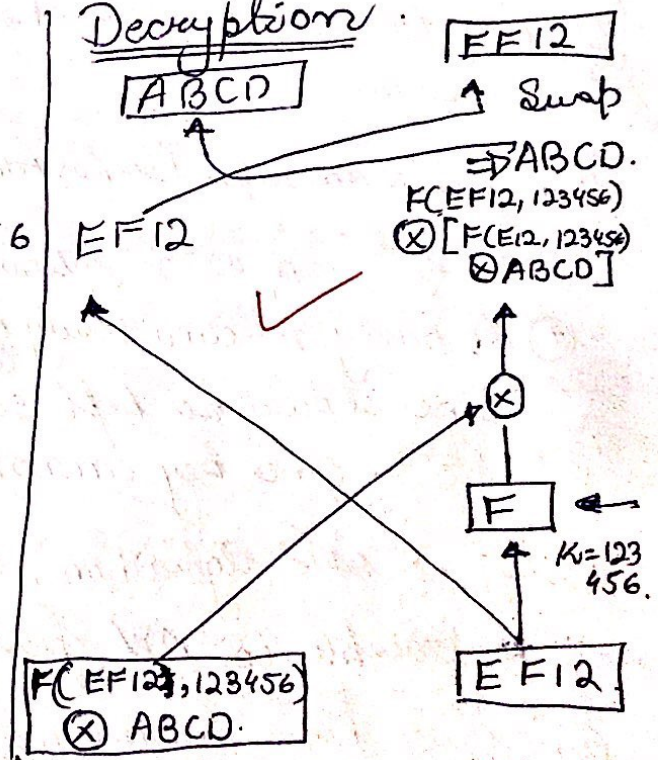 Decryption.
EF12
ABCD
Swap
⇒ABCD.
F(EF12, 123456)
6
EF12
ⓧ[F(E12, 123456)
ⓧABCD]
ⓧ
F
K=123
456.
F(EF12, 123456)
ⓧ ABCD.
EF12